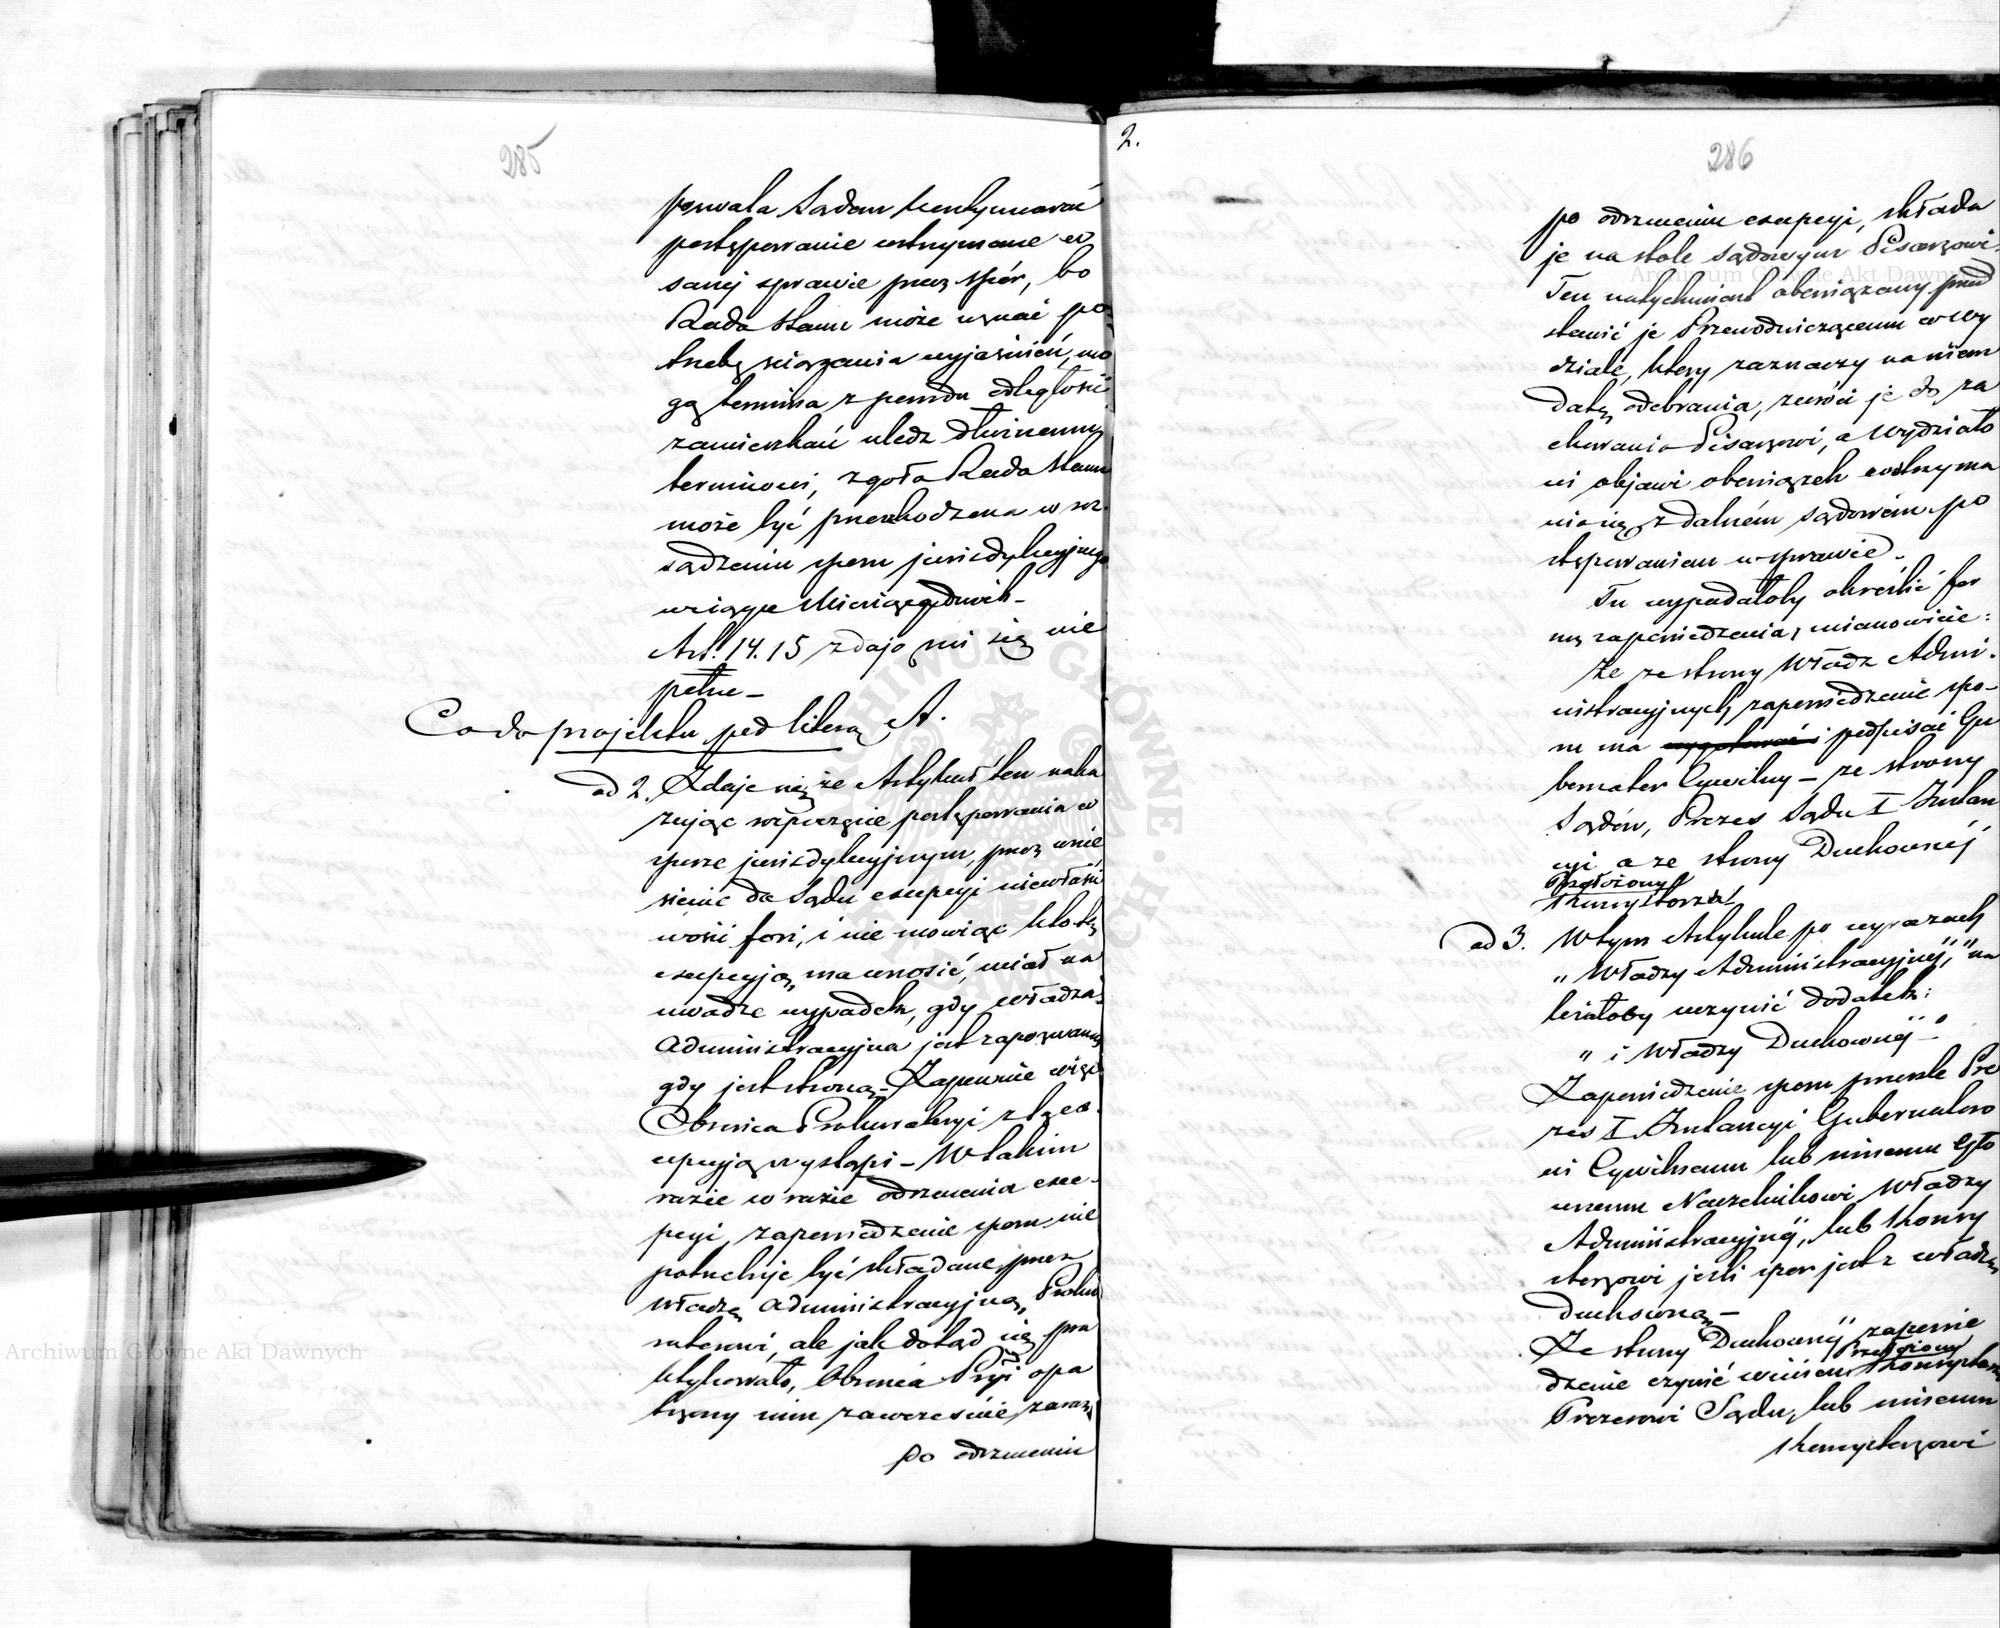 285
pozwala Sądom kontynuować
postępowanie wstrzymane w
samej sprawie przez spór, bo
Rada Stanu może uznać po-
trzebę ściągania wyjaśnień, mo
gą termina z powodu odległości
zamieszkań uledz dłuższemu
terminowi, zgoła Rada Stanu
może być przeszkodzona w roz-
sądzeniu sporu jurisdykcyjnego
w ciągu Miesięcy dwóch –
Art. 14. 15 zdają mi się nie
pełne –
Co do projektu pod literą A.
ad 2. Zdaje się że Artykuł ten naka
zując rozpoczęcie postępowania w
sporze jurisdykcyjnym, przez wnie
sienie do Sądu excepcyi niewłaści
wości fori, i nie mowiąc kto tę
excepcyją ma wnosić, miał na
uwadze wypadek, gdy władza
Administracyjna jest zapozwaną
gdy jest stroną – Zapewne więc
Obrońca Prokuratoryi z tą ex-
cepcyją wystąpi – W takim
razie w razie odrzucenia exce-
pcyi, zapowiedzenie sporu nie
potrzebuje być składane przez
Władzę Administracyjną, Proku
ratorowi, ale jak dotąd się pra
ktykowało, Obrońca Pryi opa
trzony nim zawcześnie, zaraz
po odrzuceniu
2.
286
po odrzuceniu excepcyi, składa
je na stole sądowym Pisarzowi.
Ten natychmiast obowiązany przed
stawić je Przewodniczącemu w Wy
dziale, który zaznaczy na niem
datę odebrania, zwróci je do za
chowania Pisarzowi, a Wydziało
wi objawi obowiązek wstrzyma
nia się z dalszém sądowém po
stępowaniem w sprawie –
Tu wypadałoby określić for
mę zapowiedzenia, mianowicie:
Że ze strony Władz Admi-
nistracyjnych zapowiedzenie spo-
ru ma wygotować i podpisać Gu
bernator Cywilny – ze strony
Sądów, Prezes Sądu I Instan
cyi a ze strony Duchownéj
Przełożony
Konsystorza
ad 3. W tym Artykule po wyrazach
„Władzy Administracyjnéj," na
leżałoby uczynić dodatek:
„i Władzy Duchownéj" –
Zapowiedzenie sporu prześle Pre
zes I Instancyi Gubernatoro
wi Cywilnemu lub innemu Głó
wnemu Naczelnikowi Władzy
Administracyjnéj, lub Konsy
storzowi jeśli spor jest z władzą
Duchowną –
Ze strony Duchownéj zapowie
Przełożony
dzenie czynić winien Konsystorza
Prezesowi Sądu, lub innemu
Konsystorzowi
Archiwum Główne Akt Dawnych
Archiwum Główne Akt Dawnych